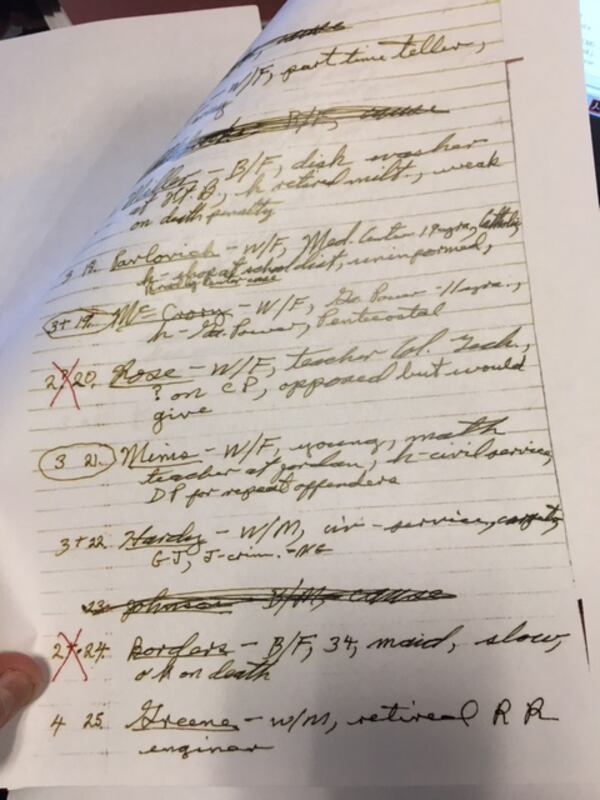 cause
W/F, part time teller,
B/F, cause
Heller - B/F, dish washer
at Ft. B., h retired milt., weak
on death penalty
3 18. Pavlovich - W/F, Med. Center 19 yrs, Catholic
h - shop at school dist, uninformed,
3+ 19. McCrory - W/F, Ga Power - 11 yrs.,
h - Ga. Power, Pentecostal
2? 20. Rose - W/F, teacher Col. Tech.,
? on CP, opposed but would
give
3 21. Mims - W/F, young, math
teacher at Jordan, h - civil service,
DP for repeat offenders
3+ 22. Hardy - W/M, civ - service,
GJ, J-crim. - NG
23. Johnson - B/M, cause
2+ 24. Borders - B/F, 34, maid, slow,
ok on death
4 25. Greene - W/M, retired R R
enginer